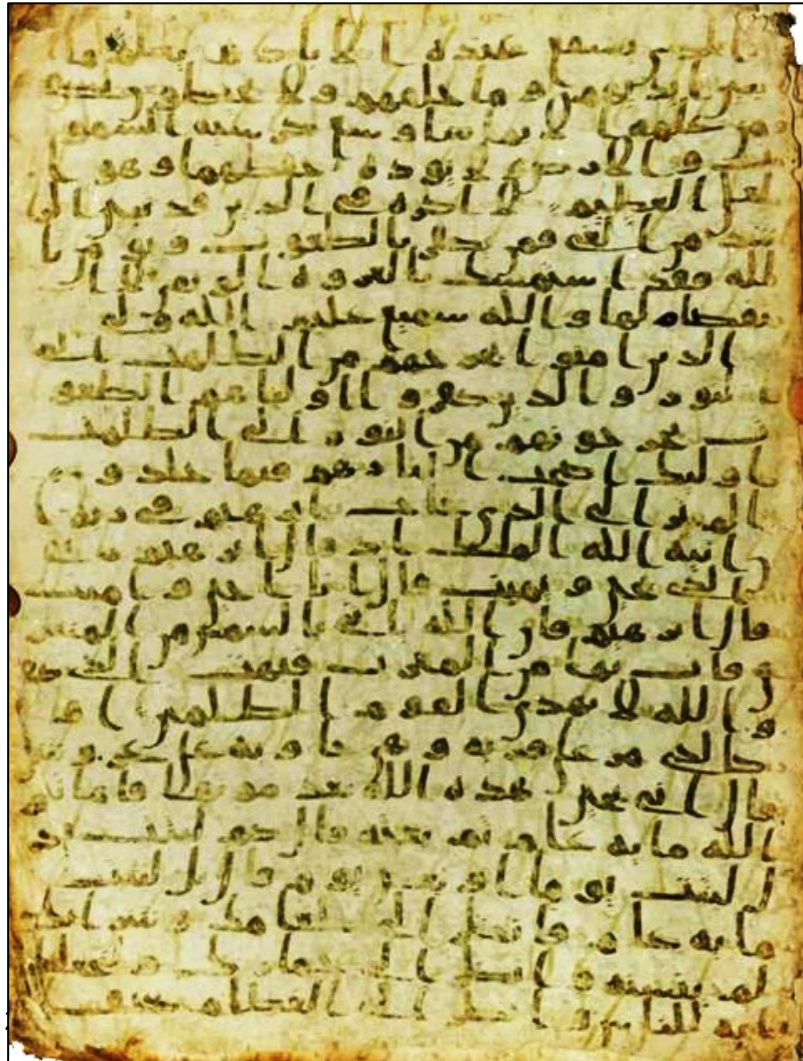 ا الذى يشفع عنده الا باذنه يعلم ما
بين ايديهم وما خلفهم ولا يحيطون بشى
من علمه الا بما شا وسع كرسيه السمو
ت والارض ولا يوده حفظهما وهو ا
لعلى العظيم لا اكره فى الدين قد تبين الر
شد من الغى فمن يكفر بالطغوت ويومن با
لله فقد استمسك بالعروة الوثقى لا ا
نفصام لها والله سميع عليم الله ولى
الذين امنوا يخرجهم من الظلمت الى
النور والذين كفروا اولياهم الطغو
ت يخرجونهم من النور الى الظلمت
اوليك اصحب النار هم فيها خلدون
الم تر الى الذى حاج ابرهيم فى ربه ا
ن اتيه الله الملك اذ قال ابرهيم ربى
الذى يحى ويميت قال انا احى واميت
قال ابرهيم فان الله ياتى بالشمس من المشر
ق فات بها من المغرب فبهت الذى كفر
والله لا يهدى القوم الظلمين او
كالذى مر على قرية وهى خاوية على عروشها
قال انى يحى هذه الله بعد موتها فاماته
الله ماية عام ثم بعثه قال كم لبثت قا
ل لبثت يوما او بعض يوم قال بل لبثت
ماية عام فانظر الى طعامك وشرابك
لم يتسنه وانظر الى حمارك ولنجعلك
اية للناس وانظر الى العظام كيف